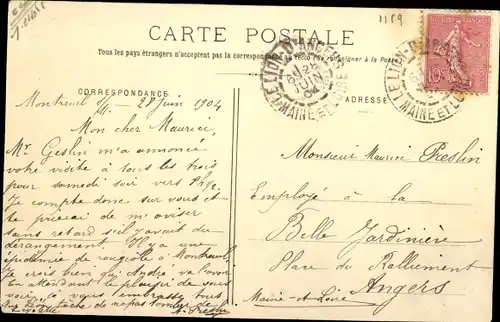 1159
CARTE POSTALE
Tous les pays étrangers n'acceptent pas la correspondance au recto se renseigner à la Poste
LE LION-D'ANGERS
28
JUIN
04
MAINE ET LOIRE
10
CORRESPONDANCE
ADRESSE
Montreuil 28 juin 1904
Mon cher Maurice,
Mr Geslin m'a annoncé
votre visite à tous les trois
pour samedi soir vers
Je compte donc sur vous et
te prierai de m'aviser
sans retard s'il y avait du
dérangement. Il y a une
épidémie de rougeole à Montreuil
Je crois bien qu'André va l'avoir
En attendant le plaisir de vous
voir, je vous embrasse tous
tâche de ne pas tomber
Monsieur Maurice Preslin
Employé à la
Belle Jardinière
Place du Ralliement
Angers
Maine-et-Loire